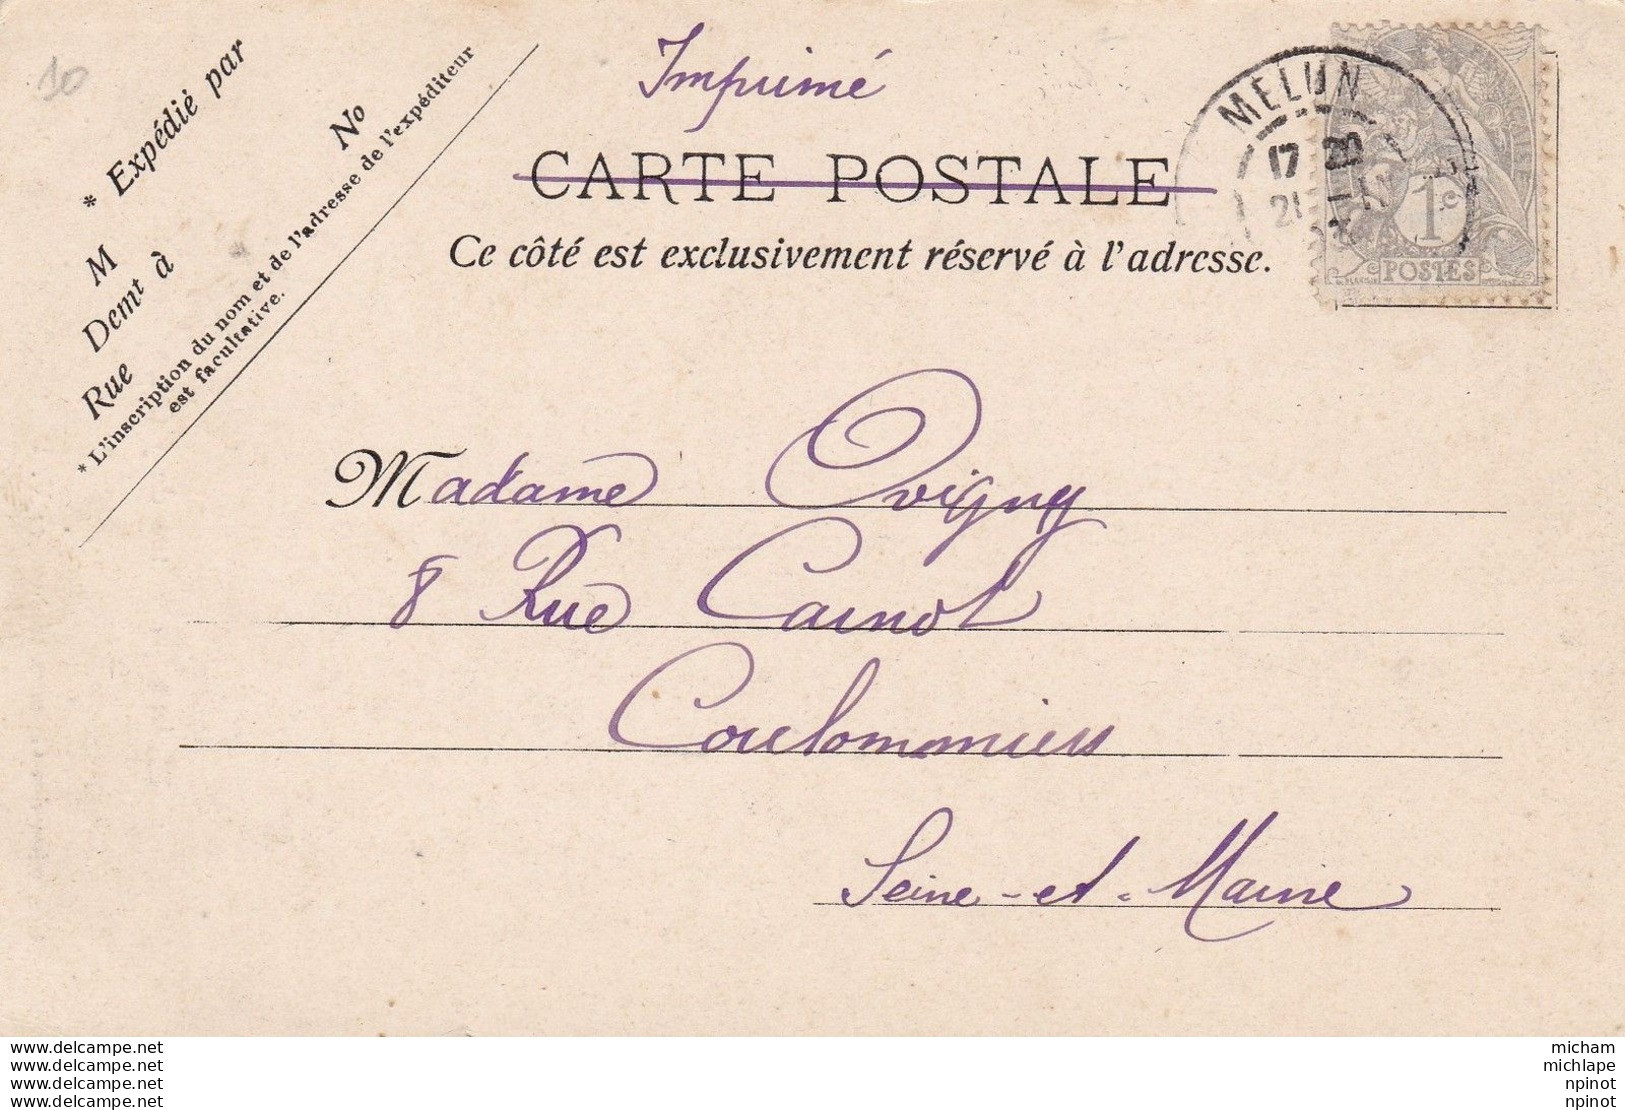 10
Imprimé
* Expédié par
No
M
Demt à
Rue
* L'inscription du nom et de l'adresse de l'expéditeur
est facultative.
CARTE POSTALE
Ce côté est exclusivement réservé à l'adresse.
MELUN
17 20
21
1c
POSTES
Madame Ovigny
8 Rue Carnot
Coulommiers
Seine-et-Marne
www.delcampe.net
www.delcampe.net
www.delcampe.net
www.delcampe.net
micham
michlape
npinot
npinot